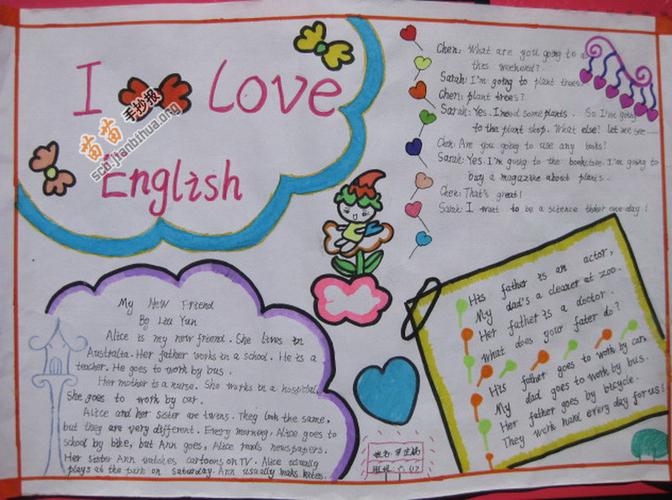 I Love
English
苗苗手抄报
scb.jianbihua.org
Chen: What are you going to do
this weekend?
Sarah: I'm going to plant trees.
Chen: plant trees?
Sarah: Yes. I need some plants. So I'm going
to the plant shop. What else? let me see
Chen: Are you going to use any books?
Sarah: Yes. I'm going to the bookstore. I'm going to
buy a magazine about plants.
Chen: That's great!
Sarah: I want to be a science one day!
My New Friend
By Liu Yun
Alice is my new friend. She lives in
Australia. Her father works in a school. He is a
teacher. He goes to work by bus.
Her mother is a nurse. She works in a hospital.
She goes to work by car.
Alice and her sister are twins. They look the same,
but they are very different. Every morning, Alice goes to
school by bike, but Ann goes, Alice reads newspapers.
Her sister Ann watches cartoons on TV. Alice usually
plays at the park on Saturday. Ann usually makes kites.
His father is an actor,
My dad's a cleaner at zoo.
Her father is a doctor.
What does your fater do?
His father goes to work by car.
My dad goes to work by bus.
Her father goes by bicycle.
They work hard every day for us!
姓名:
班级: